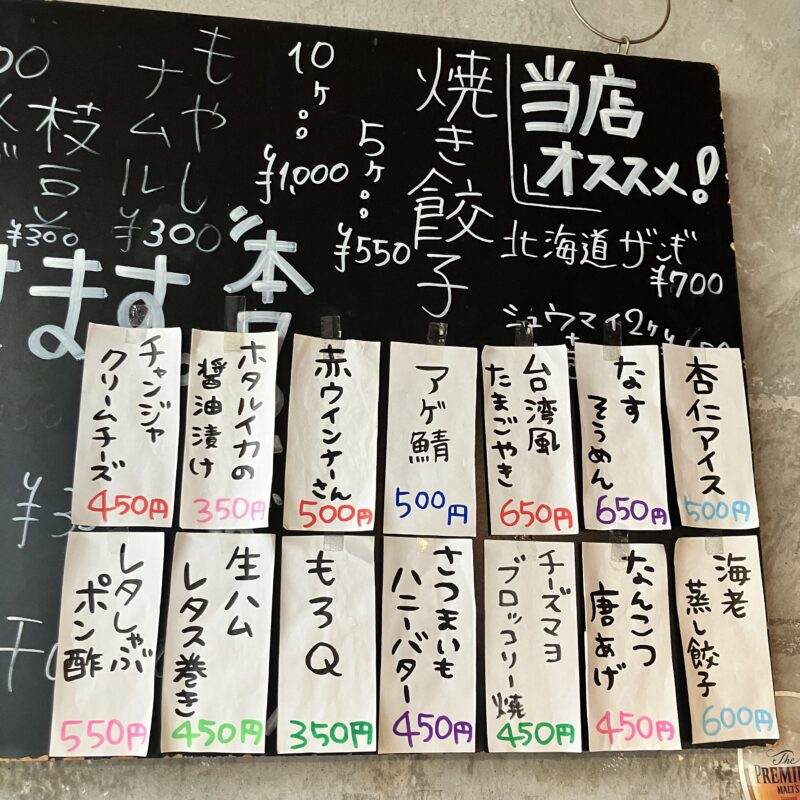 当店
オススメ!
北海道ザンギ
¥700
シュウマイ2ケ
焼き餃子
5ヶ。。¥550
10ヶ。。¥1,000
もやし
ナムル
¥300
枝豆
¥300
本日
ます。
杏仁アイス
500円
なす
そうめん
650円
台湾風
たまごやき
650円
アゲ鯖
500円
赤ウインナーさん
500円
ホタルイカの
醤油漬け
350円
チャンジャ
クリームチーズ
450円
海老
蒸し餃子
600円
なんこつ
唐あげ
450円
チーズマヨ
ブロッコリー焼
450円
さつまいも
ハニーバター
450円
もろQ
350円
生ハム
レタス巻き
450円
レタしゃぶ
ポン酢
550円
The
PREMIUM
MALT'S